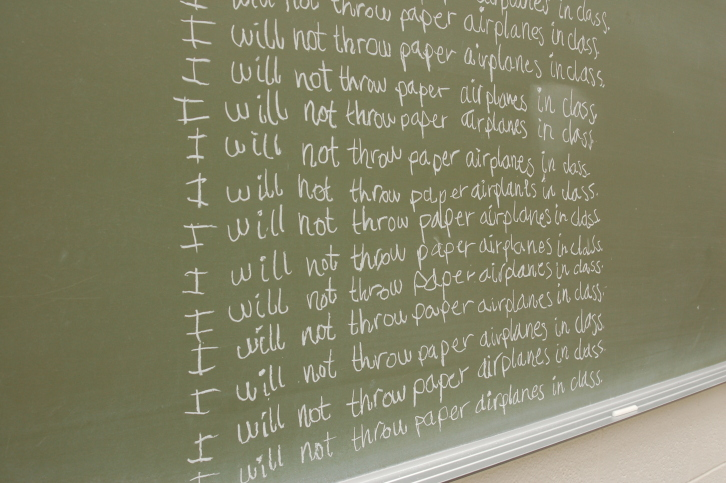 airplanes in class.
I will not throw paper airplanes in class.
I will not throw paper airplanes in class.
I will not throw paper airplanes in class.
I will not throw paper airplanes in class.
I will not throw paper airplanes in class.
I will not throw paper airplanes in class.
I will not throw paper airplanes in class.
I will not throw paper airplanes in class.
I will not throw paper airplanes in class.
I will not throw paper airplanes in class.
I will not throw paper airplanes in class.
I will not throw paper airplanes in class.
I will not throw paper airplanes in class.